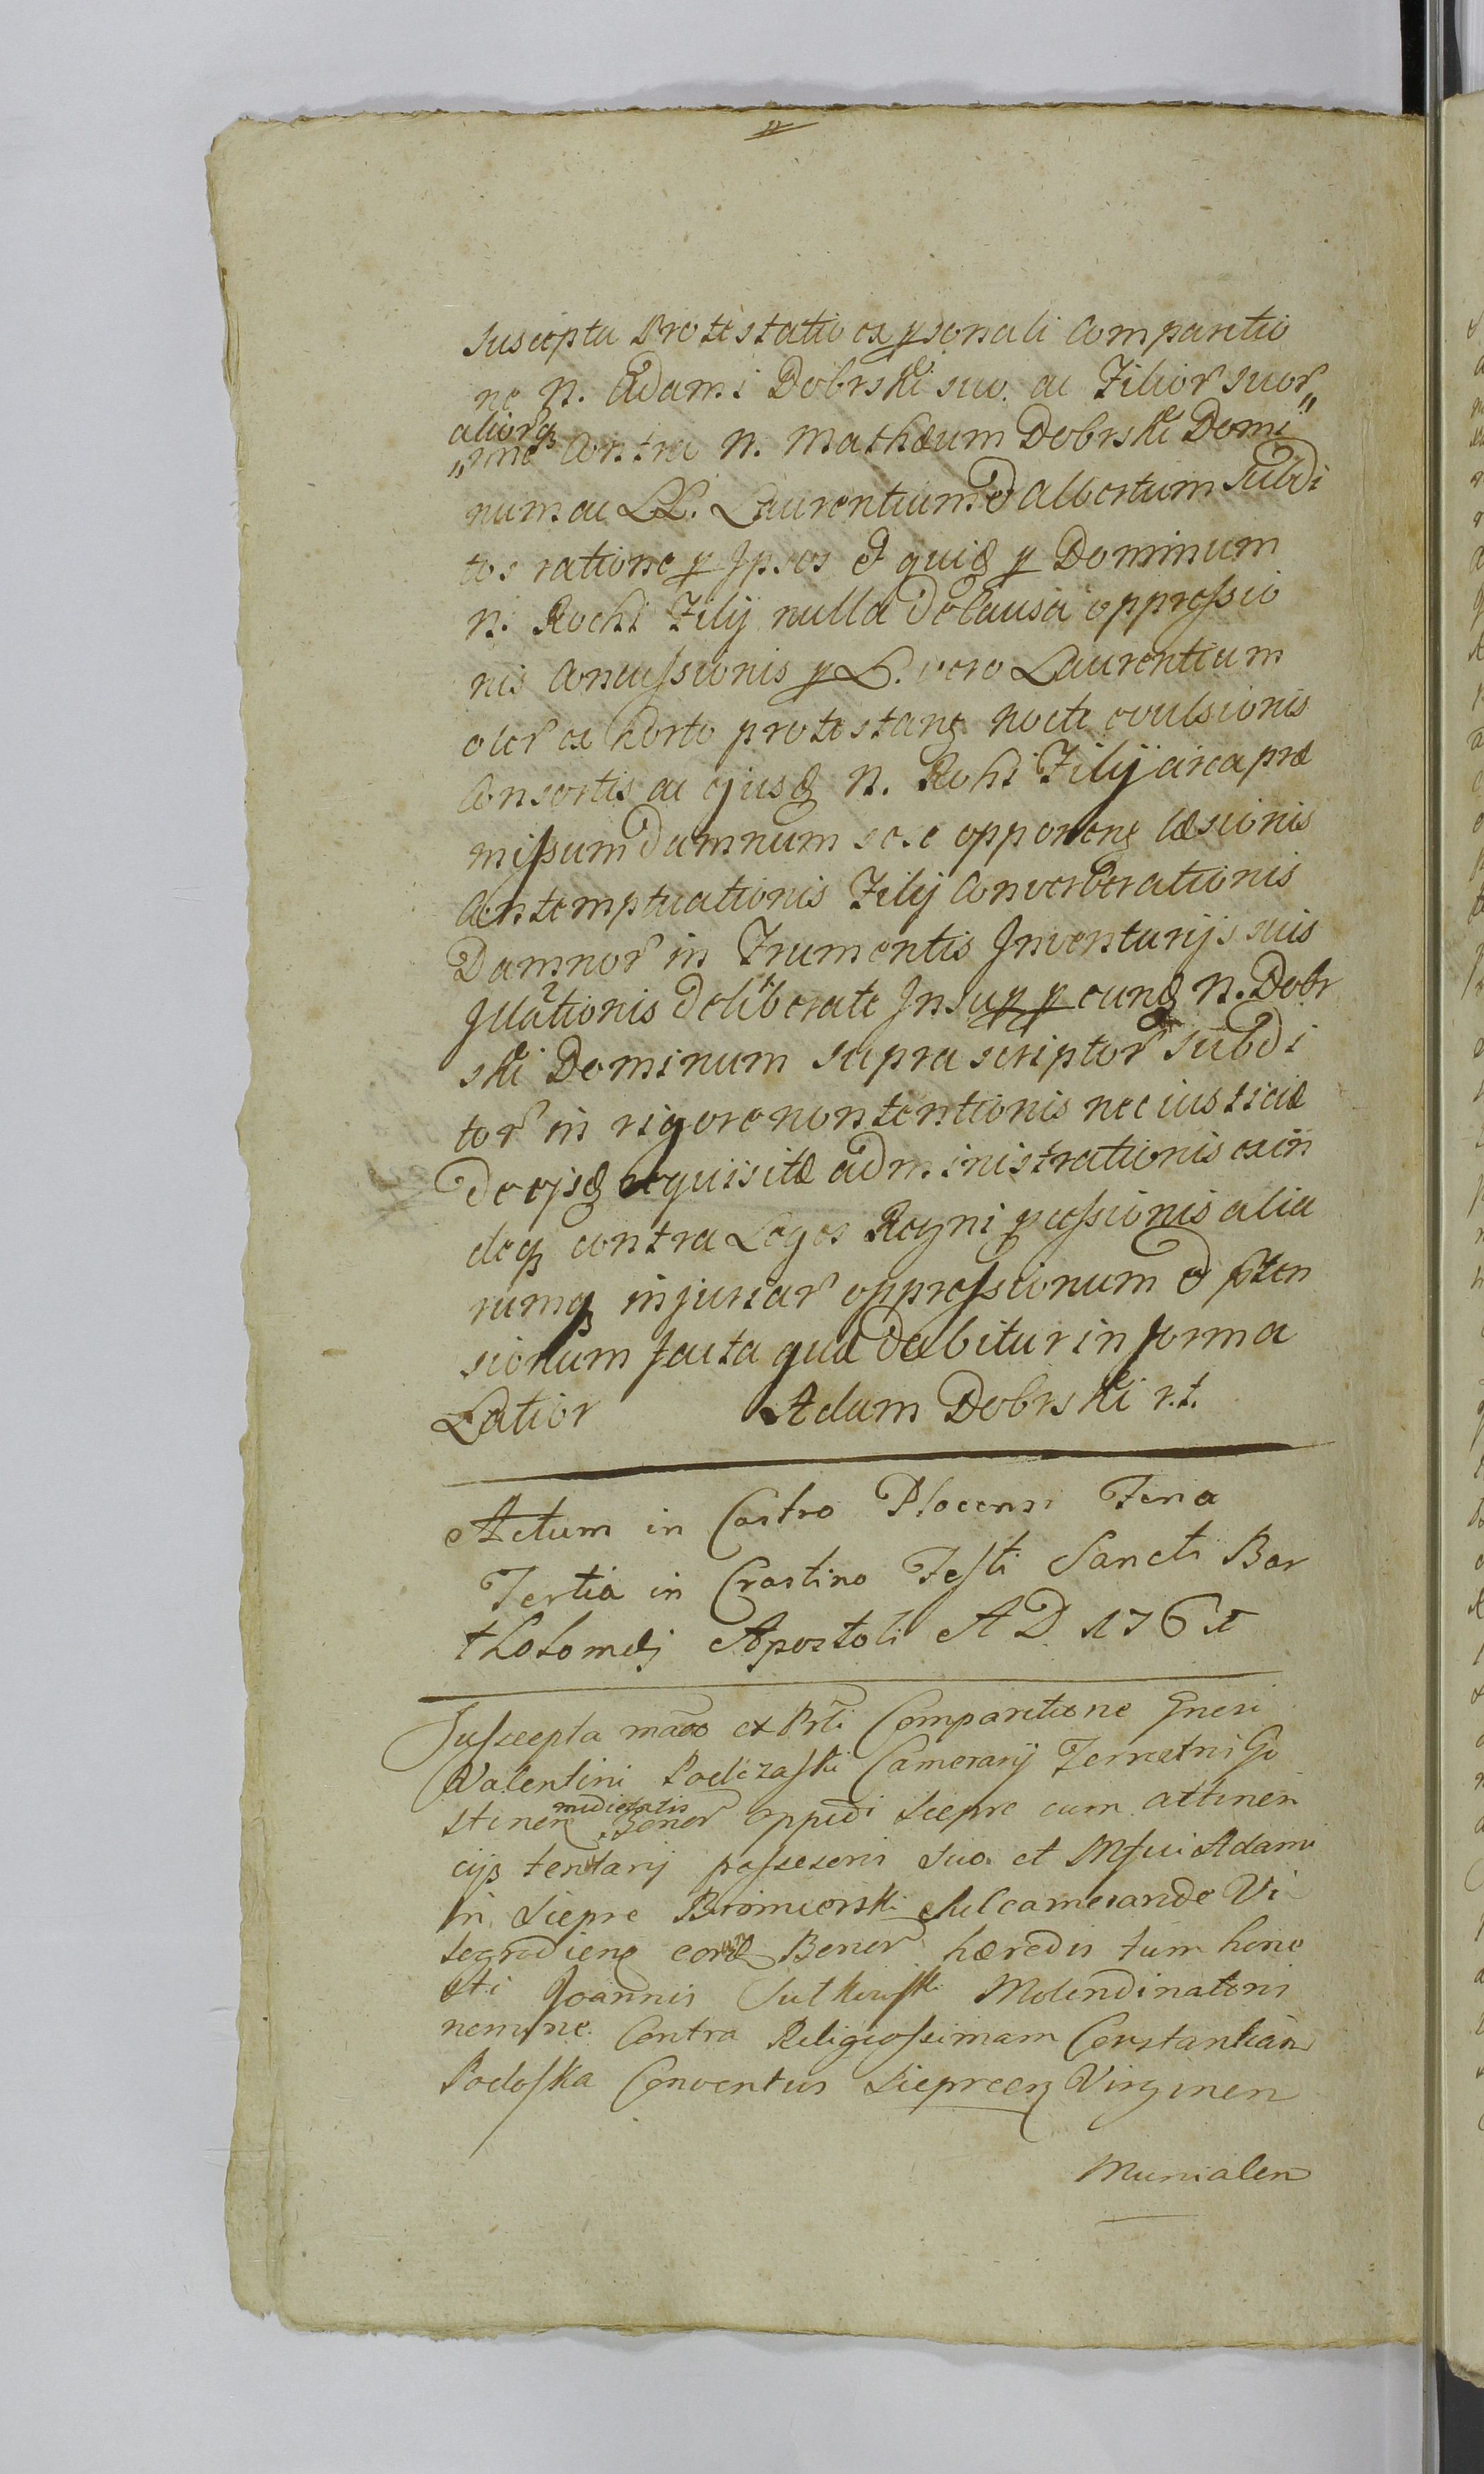 Suscepta Protestatio ex psonali Comparitio
ne N. Adami Dobrski suo. ac Filior suor„
aliorq
„mne Contra N. Mathæum Dobrski Domi
num ac LL. Laurentium & Albertum Subdi
tos ratione p Ipsos & quidē p Dominum
N. Rochi Filij nulla de Causa oppressio
nis Concussionis p L. vero Laurentium
oler ex horto protestantis nocte evulsionis
Consortis ac ejusd N. Rohi Filij circa præ
missum damnum sese opponentis læsionis
Contemptuationis Filij Converberationis
Damnor in Frumentis Inventurijs suis
Illationis deliberate Insup p eund N. Dobr
ski Dominum supra scriptor Subdi
tor in rigore non tentionis nec iusticiæ
de ejsd requisitæ administrationis exin
deq contra Leges Regni pcessionis alia
rumq injuriar oppressionum & præten
sionum facta quæ dabitur in forma
Latior Adam Dobrski r.t.
Actum in Castro Plocensi Feria
Tertia in Crastino Festi Sancti Bar
tholomæj Apostoli A D 1761
Suscepta mãõ ex Prli Comparitione Gnesi
Valentini Podczaski Camerarij Terrestris Go
medietatis
stinen Bonor oppidi Siepre cum attinen
cijs tentarij possesoris Suo. et Mfici Adami
in Siepre Bromierski Succamerande Vi
segradiens eord Bonor hæredis tum hone
sti Joannis Sutkowski Molendinatoris
nemine. Contra Religiossimam Constantiam
Podoska Conventus Sieprcens Virginen
Munialen